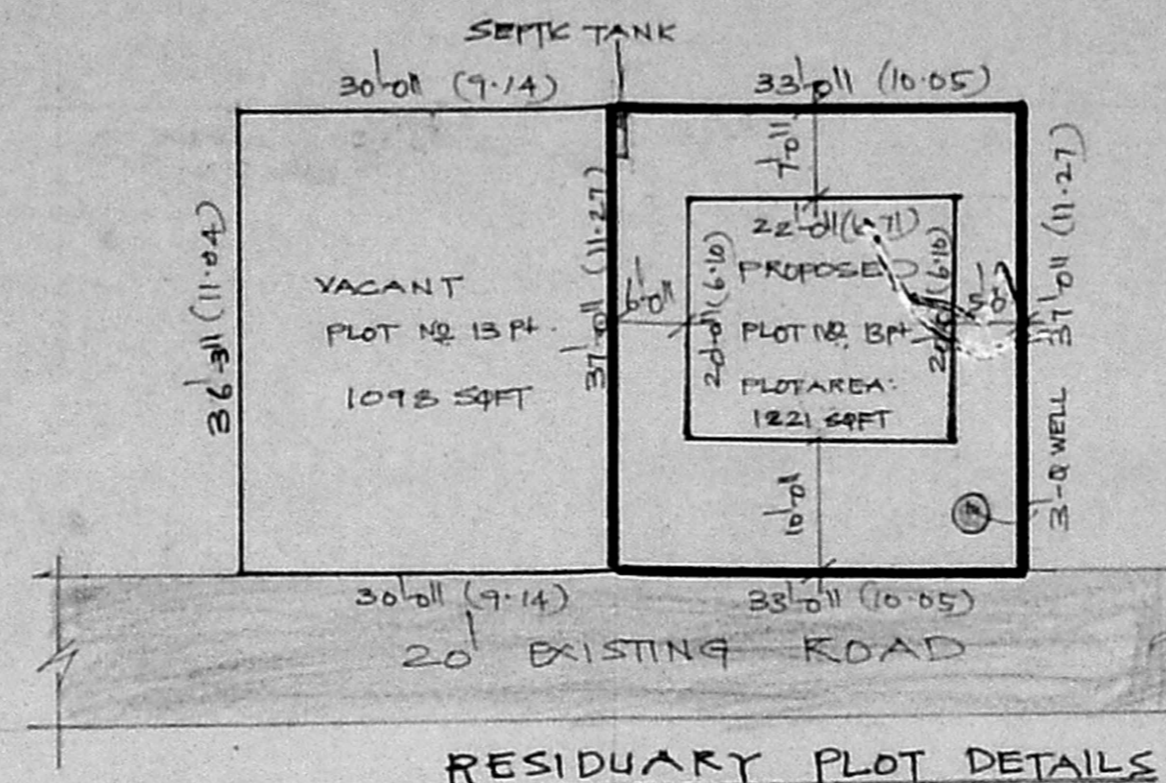 SEPTIC TANK
30'-0" (9.14)
33'-0" (10.05)
36'-3" (11.04)
VACANT
PLOT NO 13 Pt.
1098 SQFT
37'-0" (11.27)
7'-0"
6'-0"
22'-0" (6.71)
20'-0" (6.10)
PROPOSED
PLOT NO. 13Pt
PLOT AREA:
1221 SQFT
(6.10)
5'-0"
37'-0" (11.27)
10'-0"
WELL
30'-0" (9.14)
33'-0" (10.05)
20' EXISTING ROAD
RESIDUARY PLOT DETAILS